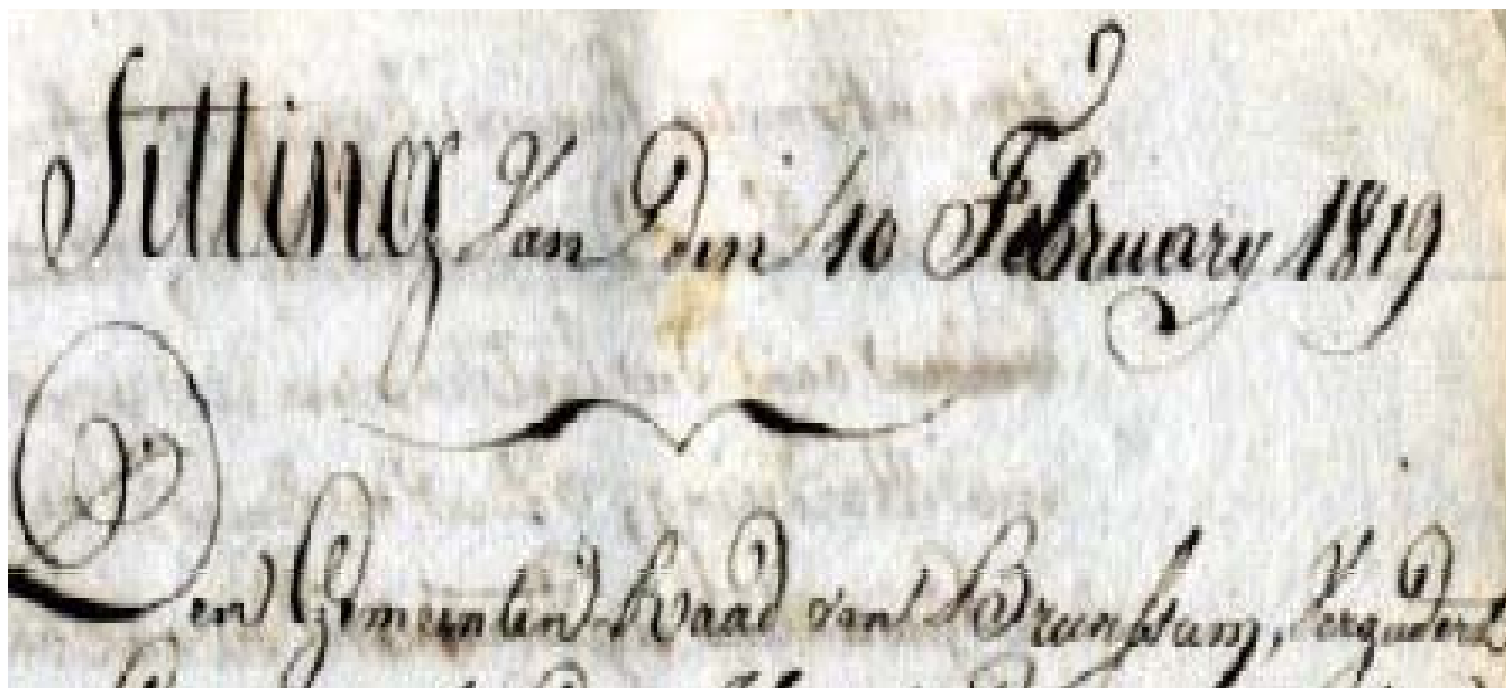 Sitting Van Den 10 February 1819
Den Gemeenten-Raad van Brunssum, Vergadert